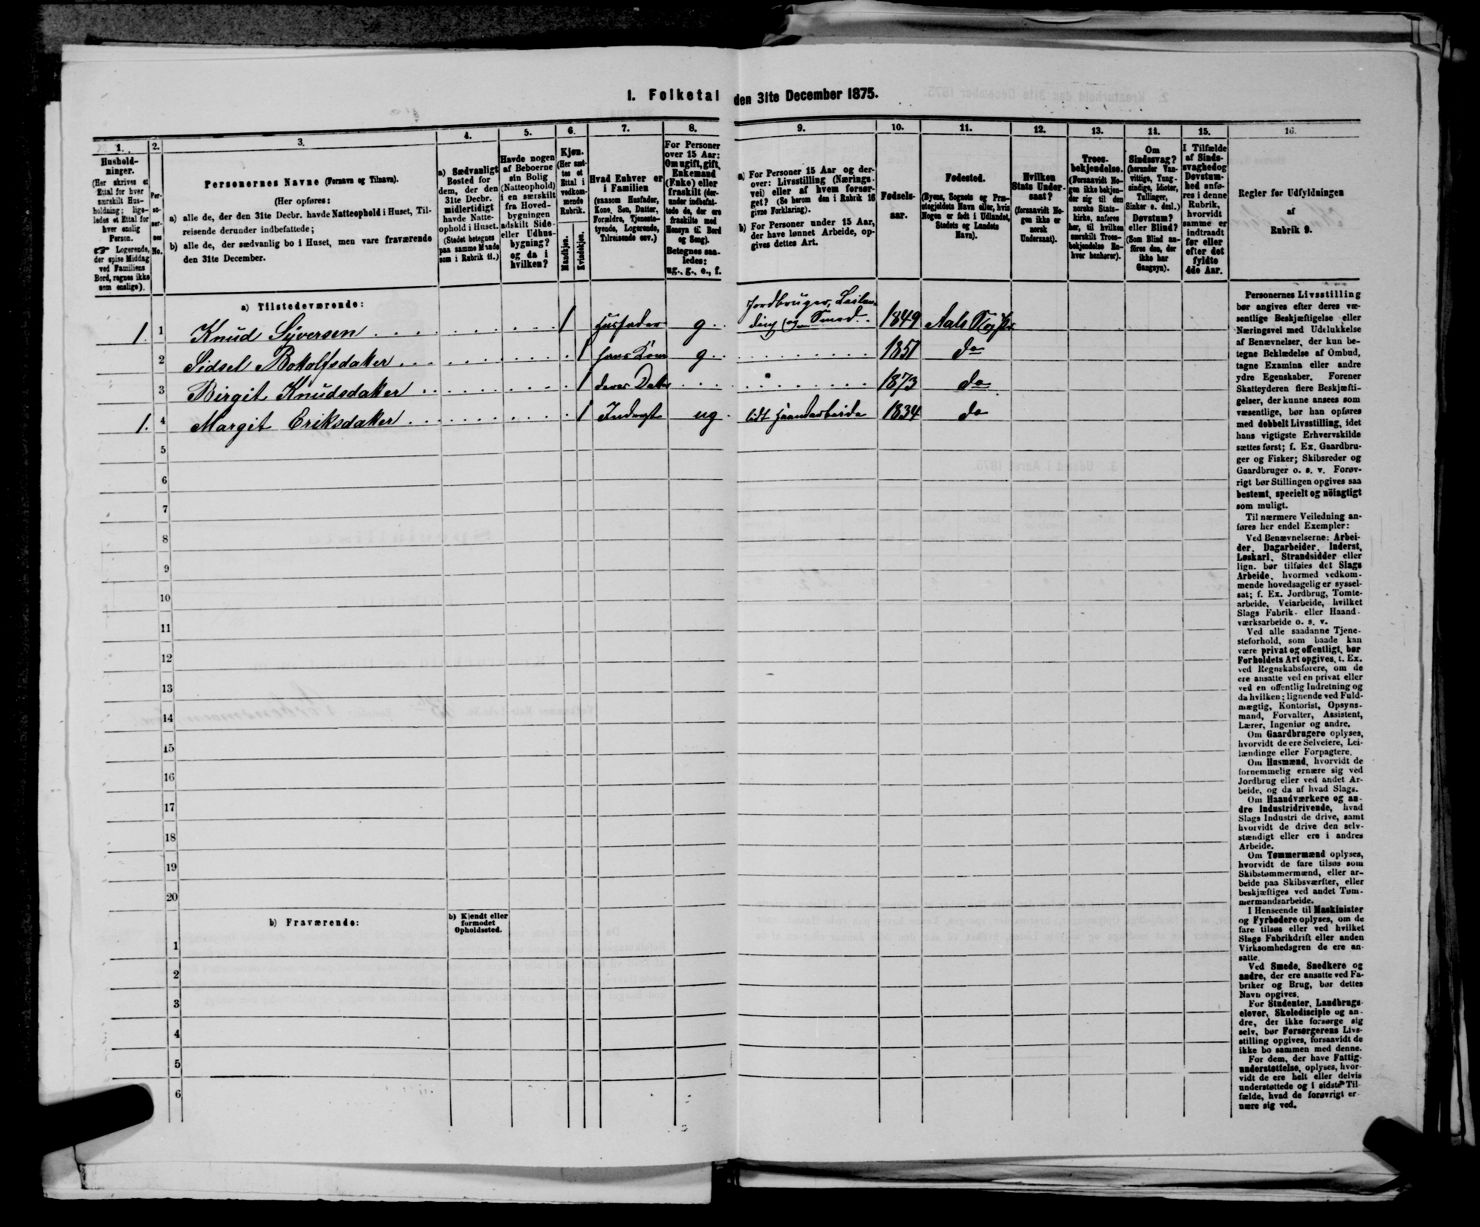 I. Folketal den 31te December 1875.
1. 2. 3. 4. 5. 6. 7. 8. 9. 10. 11. 12. 13. 14. 15. 16.
Hushold-
ninger.
(Her skrives et
Ettal for hver
særskilt Hus-
holdning; lige-
ledes et Ettal for
hver enslig
Person.
☞ Logerende,
der spise Middag
ved Familiens
Bord, regnes ikke
som enslige).
Per-
so-
ner-
nes
No.
Personernes Navne (Fornavn og Tilnavn).
(Her opføres:
a) alle de, der den 31te Decbr. havde Natteophold i Huset, Til-
reisende derunder indbefattede;
b) alle de, der sædvanlig bo i Huset, men vare fraværende
den 31te December.
a) Sædvanligt
Bosted for
dem, der den
31te Decbr.
midlertidigt
havde Natte-
ophold i Huset.
(Stedet betegnes
paa samme Maade
som i Rubrik 11.)
Havde nogen
af Beboerne
sin Bolig
(Natteophold)
i en særskilt
fra Hoved-
bygningen
adskilt Side-
eller Udhus-
bygning?
og da i
hvilken?
Kjøn.
(Her sæt-
tes et
Ettal i
vedkom-
mende
Rubrik.
Mandkjøn.
Kvindekjøn.
Hvad Enhver er
i Familien
(saasom Husfader,
Kone, Søn, Datter,
Forældre, Tjeneste-
tyende, Logerende,
Tilreisende osv.)
For Personer
over 15 Aar:
Om ugift, gift,
Enkemand
(Enke) eller
fraskilt (der-
under indbefat-
tede de, der ere
fraskilte med
Hensyn til Bord
og Seng).
Betegnes saa-
ledes:
ug., g., e., f.
a) For Personer 15 Aar og der-
over: Livsstilling (Nærings-
vei) eller af hvem forsør-
get? (Se herom den i Rubrik 16
givne Forklaring).
b) For Personer under 15 Aar,
der have lønnet Arbeide, op-
gives dettes Art.
Fødsels-
aar.
Fødested.
(Byens, Sognets og Præ-
stegjeldets Navn eller, hvis
Nogen er født i Udlandet,
Stedets og Landets
Navn).
Hvilken
Stats Under-
saat?
(forsaavidt No-
gen ikke er
norsk
Undersaat).
Troes-
bekjendelse.
(Forsaavidt No-
gen ikke bekjen-
der sig til den
norske Stats-
kirke, anføres
her, til hvilken
særskilt Troes-
bekjendelse En-
hver henhører).
Om
Sindssvag?
(herunder Van-
vittige, Tung-
sindige, Idioter,
Tullinger,
Sinker o. desl.)
Døvstum?
eller Blind?
(Som Blind an-
føres den, der
ikke har
Gangsyn).
I Tilfælde
af Sinds-
svaghed og
Døvstum-
hed anfø-
res i denne
Rubrik,
hvorvidt
samme er
indtraadt
før eller
efter det
fyldte
4de Aar.
Regler for Udfyldningen
af
Rubrik 9.
a) Tilstedeværende:
1. 1 Knud Syversen 1 Husfader g. Jordbruger, Leilen-
ding og Smed 1849 Aals
2 Sidsel Botolfsdatter 1 hans Kone g. 1851 do
3 Birgit Knudsdatter 1 deres Datter 1873 do
1. 4 Margit Eriksdatter 1 ug lidt Haandarbeide 1834 do
5
6
7
8
9
10
11
12
13
14
15
16
17
18
19
20
b) Fraværende:
b) Kjendt eller
formodet
Opholdssted.
1
2
3
4
5
6
Personernes Livsstilling
bør angives efter deres væ-
sentlige Beskjæftigelse eller
Næringsvei med Udelukkelse
af Benævnelser, der kun be-
tegne Beklædelse af Ombud,
tagne Examina eller andre
ydre Egenskaber. Forener
Skatteyderen flere Beskjæfti-
gelser, der kunne ansees som
væsentlige, bør han opføres
med dobbelt Livsstilling, idet
hans vigtigste Erhvervskilde
sættes først; f. Ex. Gaardbru-
ger og Fisker; Skibsreder og
Gaardbruger o. s. v. Forøv-
rigt bør Stillingen opgives saa
bestemt, specielt og nöiagtigt
som muligt.
Til nærmere Veiledning an-
føres her endel Exempler:
Ved Benævnelserne: Arbei-
der, Dagarbeider, Inderst,
Løskarl, Strandsidder eller
lign. bør tilføies det Slags
Arbeide, hvormed vedkom-
mende hovedsagelig er syssel-
sat; f. Ex. Jordbrug, Tomte-
arbeide, Veiarbeide, hvilket
Slags Fabrik- eller Haand-
værksarbeide o. s. v.
Ved alle saadanne Tjene-
steforhold, som baade kan
være privat og offentligt, bør
Forholdets Art opgives, t. Ex.
ved Regnskabsførere, om de
ere ansatte ved en privat eller
ved en offentlig Indretning og
da hvilken; lignende ved Fuld-
mægtig, Kontorist, Opsyns-
mand, Forvalter, Assistent,
Lærer, Ingeniør og andre.
Om Gaardbrugere oplyses,
hvorvidt de ere Selveiere, Lei-
lændinge eller Forpagtere.
Om Husmænd, hvorvidt de
fornemmelig ernære sig ved
Jordbrug eller ved andet Ar-
beide, og da af hvad Slags.
Om Haandværkere og an-
dre Industridrivende, hvad
Slags Industri de drive, samt
hvorvidt de drive den selv-
stændigt eller ere i andres
Arbeide.
Om Tømmermænd oplyses,
hvorvidt de fare tilsøs som
Skibstømmermænd, eller ar-
beide paa Skibsværfter, eller
beskjæftiges ved andet Tøm-
mermandsarbeide.
I Henseende til Maskinister
og Fyrbødere oplyses, om de
fare tilsøs eller ved hvilket
Slags Fabrikdrift eller anden
Virksomhedsgren de ere an-
satte.
Ved Smede, Snedkere og
andre, der ere ansatte ved Fa-
briker og Brug, bør dettes
Navn opgives.
For Studenter, Landbrugs-
elever, Skoledisciple og an-
dre, der ikke forsørge sig
selv, bør Forsørgerens Livs-
stilling opgives, forsaavidt de
ikke bo sammen med denne.
For dem, der have Fattig-
understøttelse, oplyses, hvor-
vidt de ere helt eller delvis
understøttede og i sidste Til-
fælde, hvad de forøvrigt er-
nære sig ved.